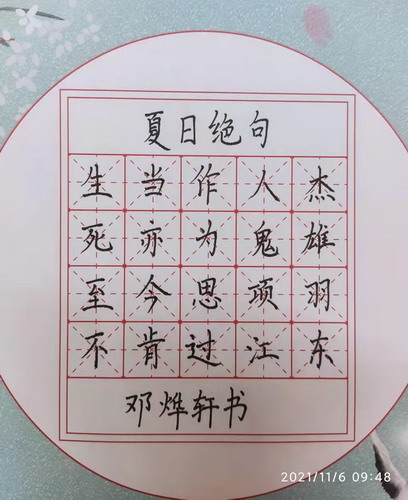 夏日绝句
生当作人杰
死亦为鬼雄
至今思项羽
不肯过江东
邓烨轩书
2021/11/6 09:48